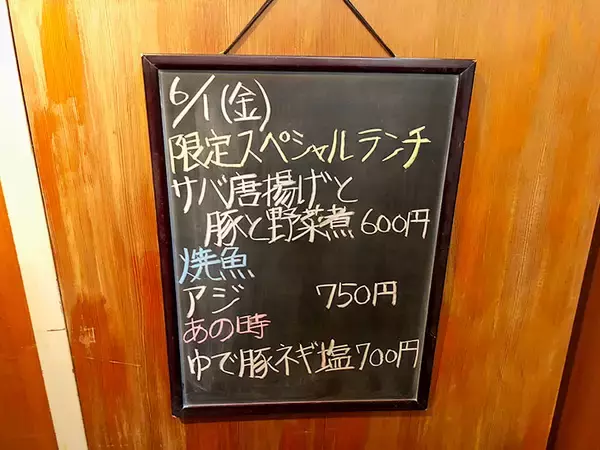 6/1(金)
限定スペシャルランチ
サバ唐揚げと
豚と野菜煮 600円
焼魚
アジ 750円
あの時
ゆで豚ネギ塩 700円